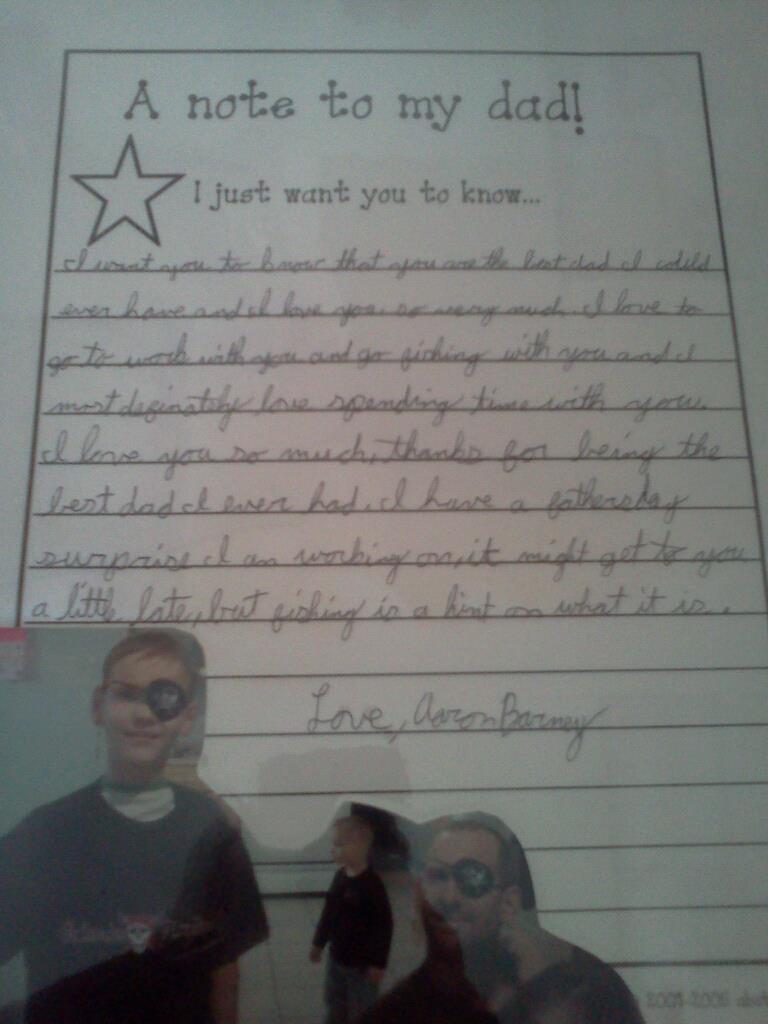 A note to my dad!
I just want you to know...
I want you to know that you are the best dad I could
ever have and I love you so very much. I love to
go to work with you and go fishing with you and I
most definately love spending time with you.
I love you so much, thanks for being the
best dad I ever had. I have a fathersday
surprise I am working on, it might get to you
a little late, but fishing is a hint on what it is..
Love, Aaron Barney